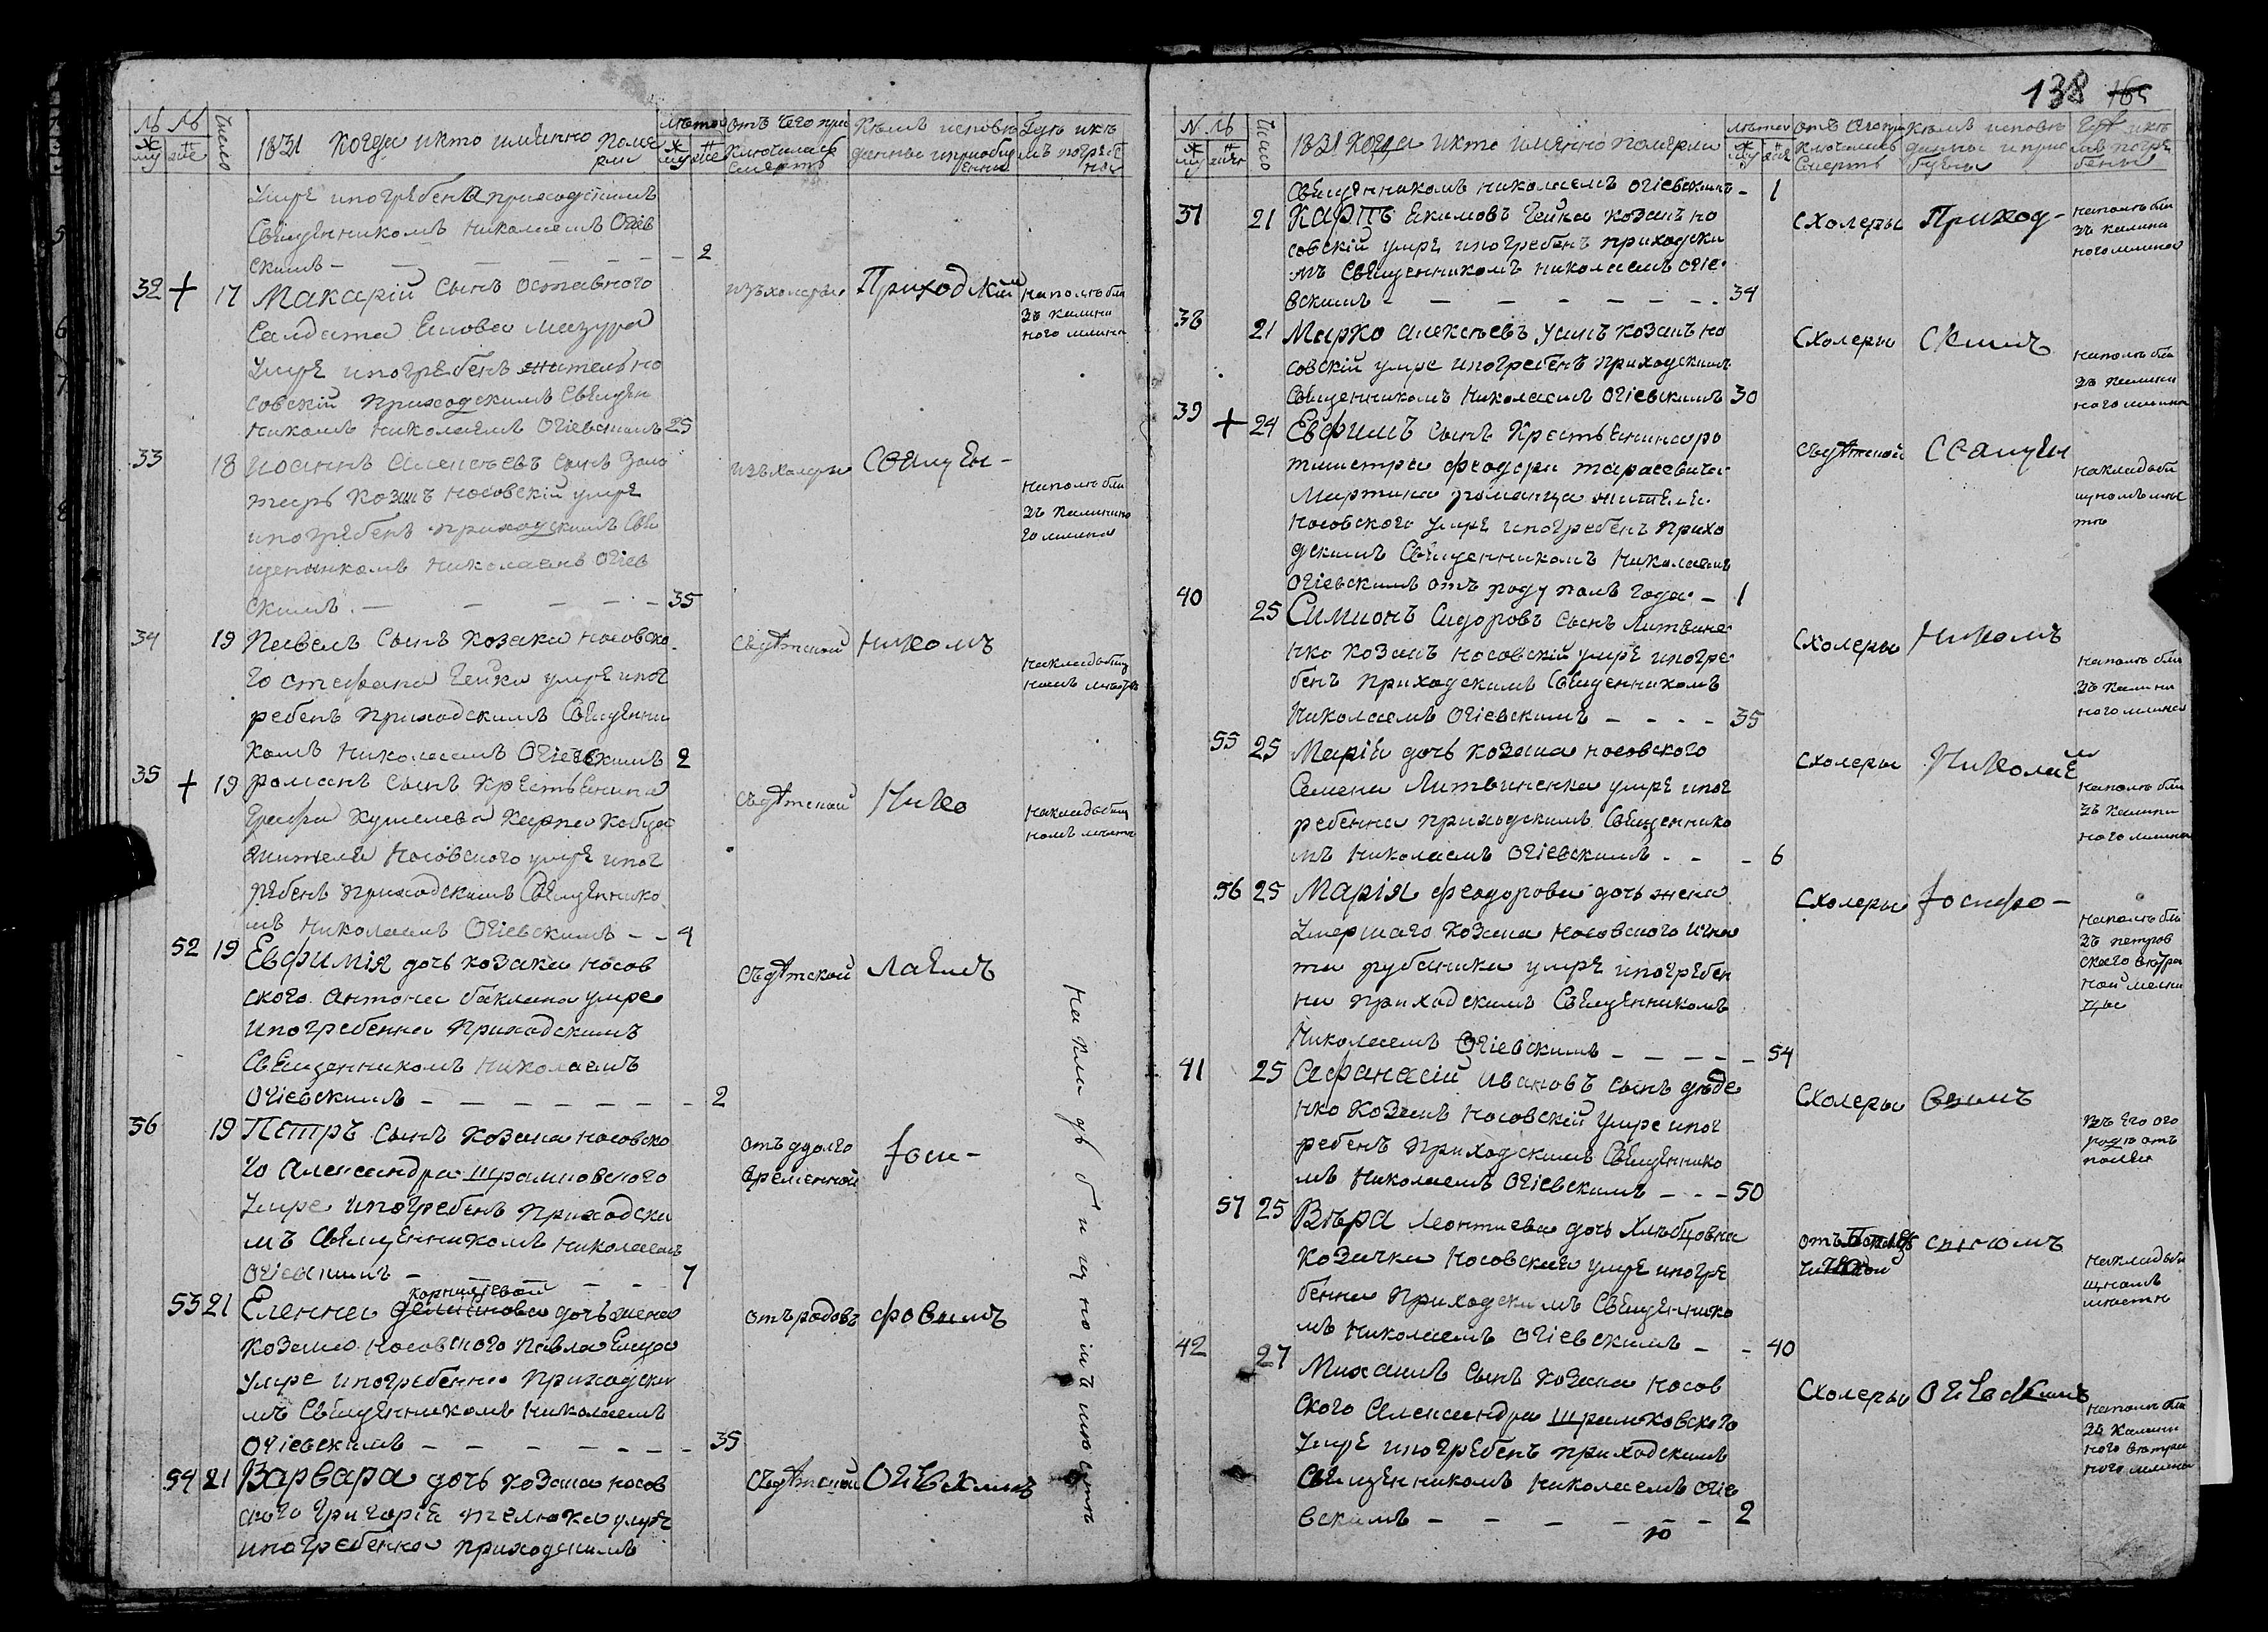 № № число 1831 Когда и кто именно поме
рли
лѣта отъ чего при
ключилась
смерть
Кѣмъ исповѣ
даны и приобщ
ены
Гдѣ и кѣ
мъ погребе
ны
умре и погребена приходскимъ
Священникомъ Николаемъ Огіев
скимъ – – – – – – – 2
32 + 17 Макарій сынъ оставного
Салдата Мазура
умре и погребенъ житель но
совскій приходскимъ Священ
никомъ Николаемъ Огіевскимъ 25
изъ холеры Приходскій
на полѣ бли
зъ калини
ного млина
33 18 Иоаннъ Алексѣевъ сынъ Золо
тарь козакъ Носовскій умре
и погребенъ приходскимъ Свя
щенникомъ Николаемъ Огіев
скимъ. – – – – – 35
изъ холеры Священ-
на полѣ бли
зъ калинно
го млина
34 19 Павелъ сынъ козака носовско
го стефана Гейка умре и пог
ребенъ приходскимъ Священни
комъ Николаемъ Огіевскимъ 2
съ дѣтской никомъ
на кладбищ
номъ мѣстѣ
35 + 19 Романъ сынъ крестьянина
Графа Кушелева Карпа Кобца
жителя Носовского умре и пог
ребенъ приходскимъ Священнико
мъ Николаемъ Огіевскимъ – – 4
съ дѣтской Нико
на кладбищ
номъ мѣстѣ
52 19 Евфимія дочь козака носов
ского Антона баклана умре
и погребенна приходскимъ
Священникомъ Николаемъ
Огіевскимъ – – – – – – – – 2
съ дѣтской лаемъ
36 19 Петръ сынъ козака носовско
го Александра Шрамковского
умре и погребенъ приходски
мъ Священникомъ Николаемъ
Огіевскимъ – – – – – – 7
отъ долго
временной Іоси-
корніевой
53 21 Еленна дочь жена
козака носовского Павла
умре и погребенна приходски
мъ Священникомъ Николаемъ
Огіевскимъ – – – – – – – – 35
отъ родовъ фовымъ
54 21 Варвара дочь козака носов
ского Григорій умре
и погребенна приходскимъ
съ дѣтской Огіевскимъ
на кладбищномъ мѣстѣ
138 165
N № число 1831 Когда и кто именно померли
лѣта отъ чего при
ключилась
смерть
Кѣмъ исповѣ
даны и прио
бщены
Гдѣ и кѣ
мъ погре
бены
Священникомъ Николаемъ Огіевскимъ – 1
37 21 Карпъ Екимовъ Гейка козакъ но
совскій умре и погребенъ приходски
мъ Священникомъ Николаемъ Огіе
вскимъ – – – – – – – – 34
съ холеры Приход-
на полѣ бли
зъ калини
ного млина
38 21 Марко Алексѣевъ козакъ но
совскій умре и погребенъ приходскимъ
Священникомъ Николаемъ Огіевскимъ 30
съ холеры скимъ
на полѣ бли
зъ калини
ного млина
39 + 24 Евфимъ сынъ крестьянина ро
тмистра Феодора тарасевича
Мартина романца жителя
носовского умре и погребенъ прихо
дскимъ Священникомъ Николаемъ
Огіевскимъ отъ роду полъ года – 1
съ дѣтской Священ
на кладби
щномъ мѣс
тѣ
40 25 Симионъ Сидоровъ сынъ Литвине
нко козакъ носовскій умре и погре
бенъ приходскимъ Священникомъ
Николаемъ Огіевскимъ – – – – 35
съ холеры Никомъ
на полѣ бли
зъ калини
ного млина
55 25 Марія дочь козака носовского
Семена Литвиненка умре и пог
ребенна приходскимъ Священнико
мъ Николаемъ Огіевскимъ – – – 6
съ холеры Николае
м
на полѣ бли
зъ калини
ного млина
56 25 Марія Феодорова дочь жена
умершаго козака носовского Игна
та рубаника умре и погребен
на приходскимъ Священникомъ
Николаемъ Огіевскимъ – – – – – 54
съ холеры Іосифо –
на полѣ бли
зъ петров
ского вѣтря
ной мелни
цы
41 25 Афанасій Ивановъ сынъ
нко козакъ носовскій умре и пог
ребенъ приходскимъ Священнико
мъ Николаемъ Огіевскимъ – – – 50
съ холеры вымъ
въ его ого
родѣ отъ
поля
57 25 Вѣра Леонтиева дочь Хлѣбцовна
козачка носовская умре и погре
бенна приходскимъ Священнико
мъ Николаемъ Огіевскимъ – – 40
отъ
на кладби
щномъ
мѣстѣ
42 27 Михаилъ сынъ козака носов
ского Александра Шрамковского
умре и погребенъ приходскимъ
Священникомъ Николаемъ Огіе
вскимъ – – – – – – 2
съ холеры Огіевскимъ
на полѣ бли
зъ калини
ного вѣтря
ного млина
10